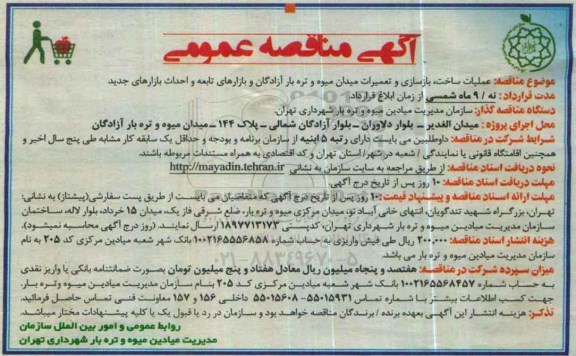 آگهی مناقصه عمومی
موضوع مناقصه: عملیات ساخت، بازسازی و تعمیرات میدان میوه و تره بار آزادگان و بازارهای تابعه و احداث بازارهای جدید.
مدت قرارداد: نه / ۹ ماه شمسی از زمان ابلاغ قرارداد.
دستگاه مناقصه گذار: سازمان مدیریت میادین میوه و تره بار شهرداری تهران.
محل اجرای پروژه: میدان الغدیر ـ بلوار دلاوران ـ بلوار آزادگان شمالی ـ پلاک ۱۴۴ ـ میدان میوه و تره بار آزادگان
شرایط شرکت در مناقصه: داوطلبین می بایست دارای رتبه ۵ ابنیه از سازمان برنامه و بودجه و حداقل یک سابقه کار مشابه طی پنج سال اخیر و
همچنین اقامتگاه قانونی یا نمایندگی / شعبه در شهر/ استان تهران و کد اقتصادی به همراه مستندات مربوطه باشند.
نحوه دریافت اسناد مناقصه: از طریق مراجعه به سایت سازمان به نشانی http://mayadin.tehran.ir
مهلت دریافت اسناد مناقصه: ۱۰ روز پس از تاریخ درج آگهی.
مهلت ارائه اسناد مناقصه و پیشنهاد قیمت: ۱۰ روز پس از تاریخ درج آگهی که متقاضیان می بایست از طریق پست سفارشی(پیشتاز) به نشانی:
تهران، بزرگراه شهید تندگویان، انتهای خانی آباد نو، میدان مرکزی میوه و تره بار، ضلع شرقی فاز یک، میدان ۱۵ خرداد، بلوار لاله، ساختمان
سازمان مدیریت میادین میوه و تره بار شهرداری تهران، کدپستی ۱۸۹۷۷۱۳۱۷۳ ارسال نمایند. (روز درج آگهی محاسبه نمیشود).
هزینه انتشار اسناد مناقصه: ۲۰۰.۰۰۰ ریال طی فیش واریزی به حساب شماره ۱۰۰۲۱۶۵۵۵۶۸۵۸ بانک شهر شعبه میادین مرکزی کد ۲۰۵ به نام
سازمان مدیریت میادین میوه و تره بار می باشد.
میزان سپرده شرکت در مناقصه: هفتصد و پنجاه میلیون ریال معادل هفتاد و پنج میلیون تومان بصورت ضمانتنامه بانکی یا واریز نقدی
به حساب شماره ۱۰۰۲۱۶۵۵۶۸۴۵۷ بانک شهر شعبه میادین مرکزی کد ۲۰۵ بنام سازمان مدیریت میادین میوه و تره بار.
جهت کسب اطلاعات بیشتر با شماره تماس ۵۵۰۱۵۹۳۱ـ ۵۵۰۱۵۶۰۸ داخلی ۱۵۶ و ۱۵۷ معاونت فنی تماس حاصل فرمائید.
تذکر: هزینه انتشار این آگهی بعهده برنده / برندگان مناقصه خواهد بود و سازمان در رد یا قبول یک یا کلیه پیشنهادات مختار میباشد.
روابط عمومی و امور بین الملل سازمان
مدیریت میادین میوه و تره بار شهرداری تهران